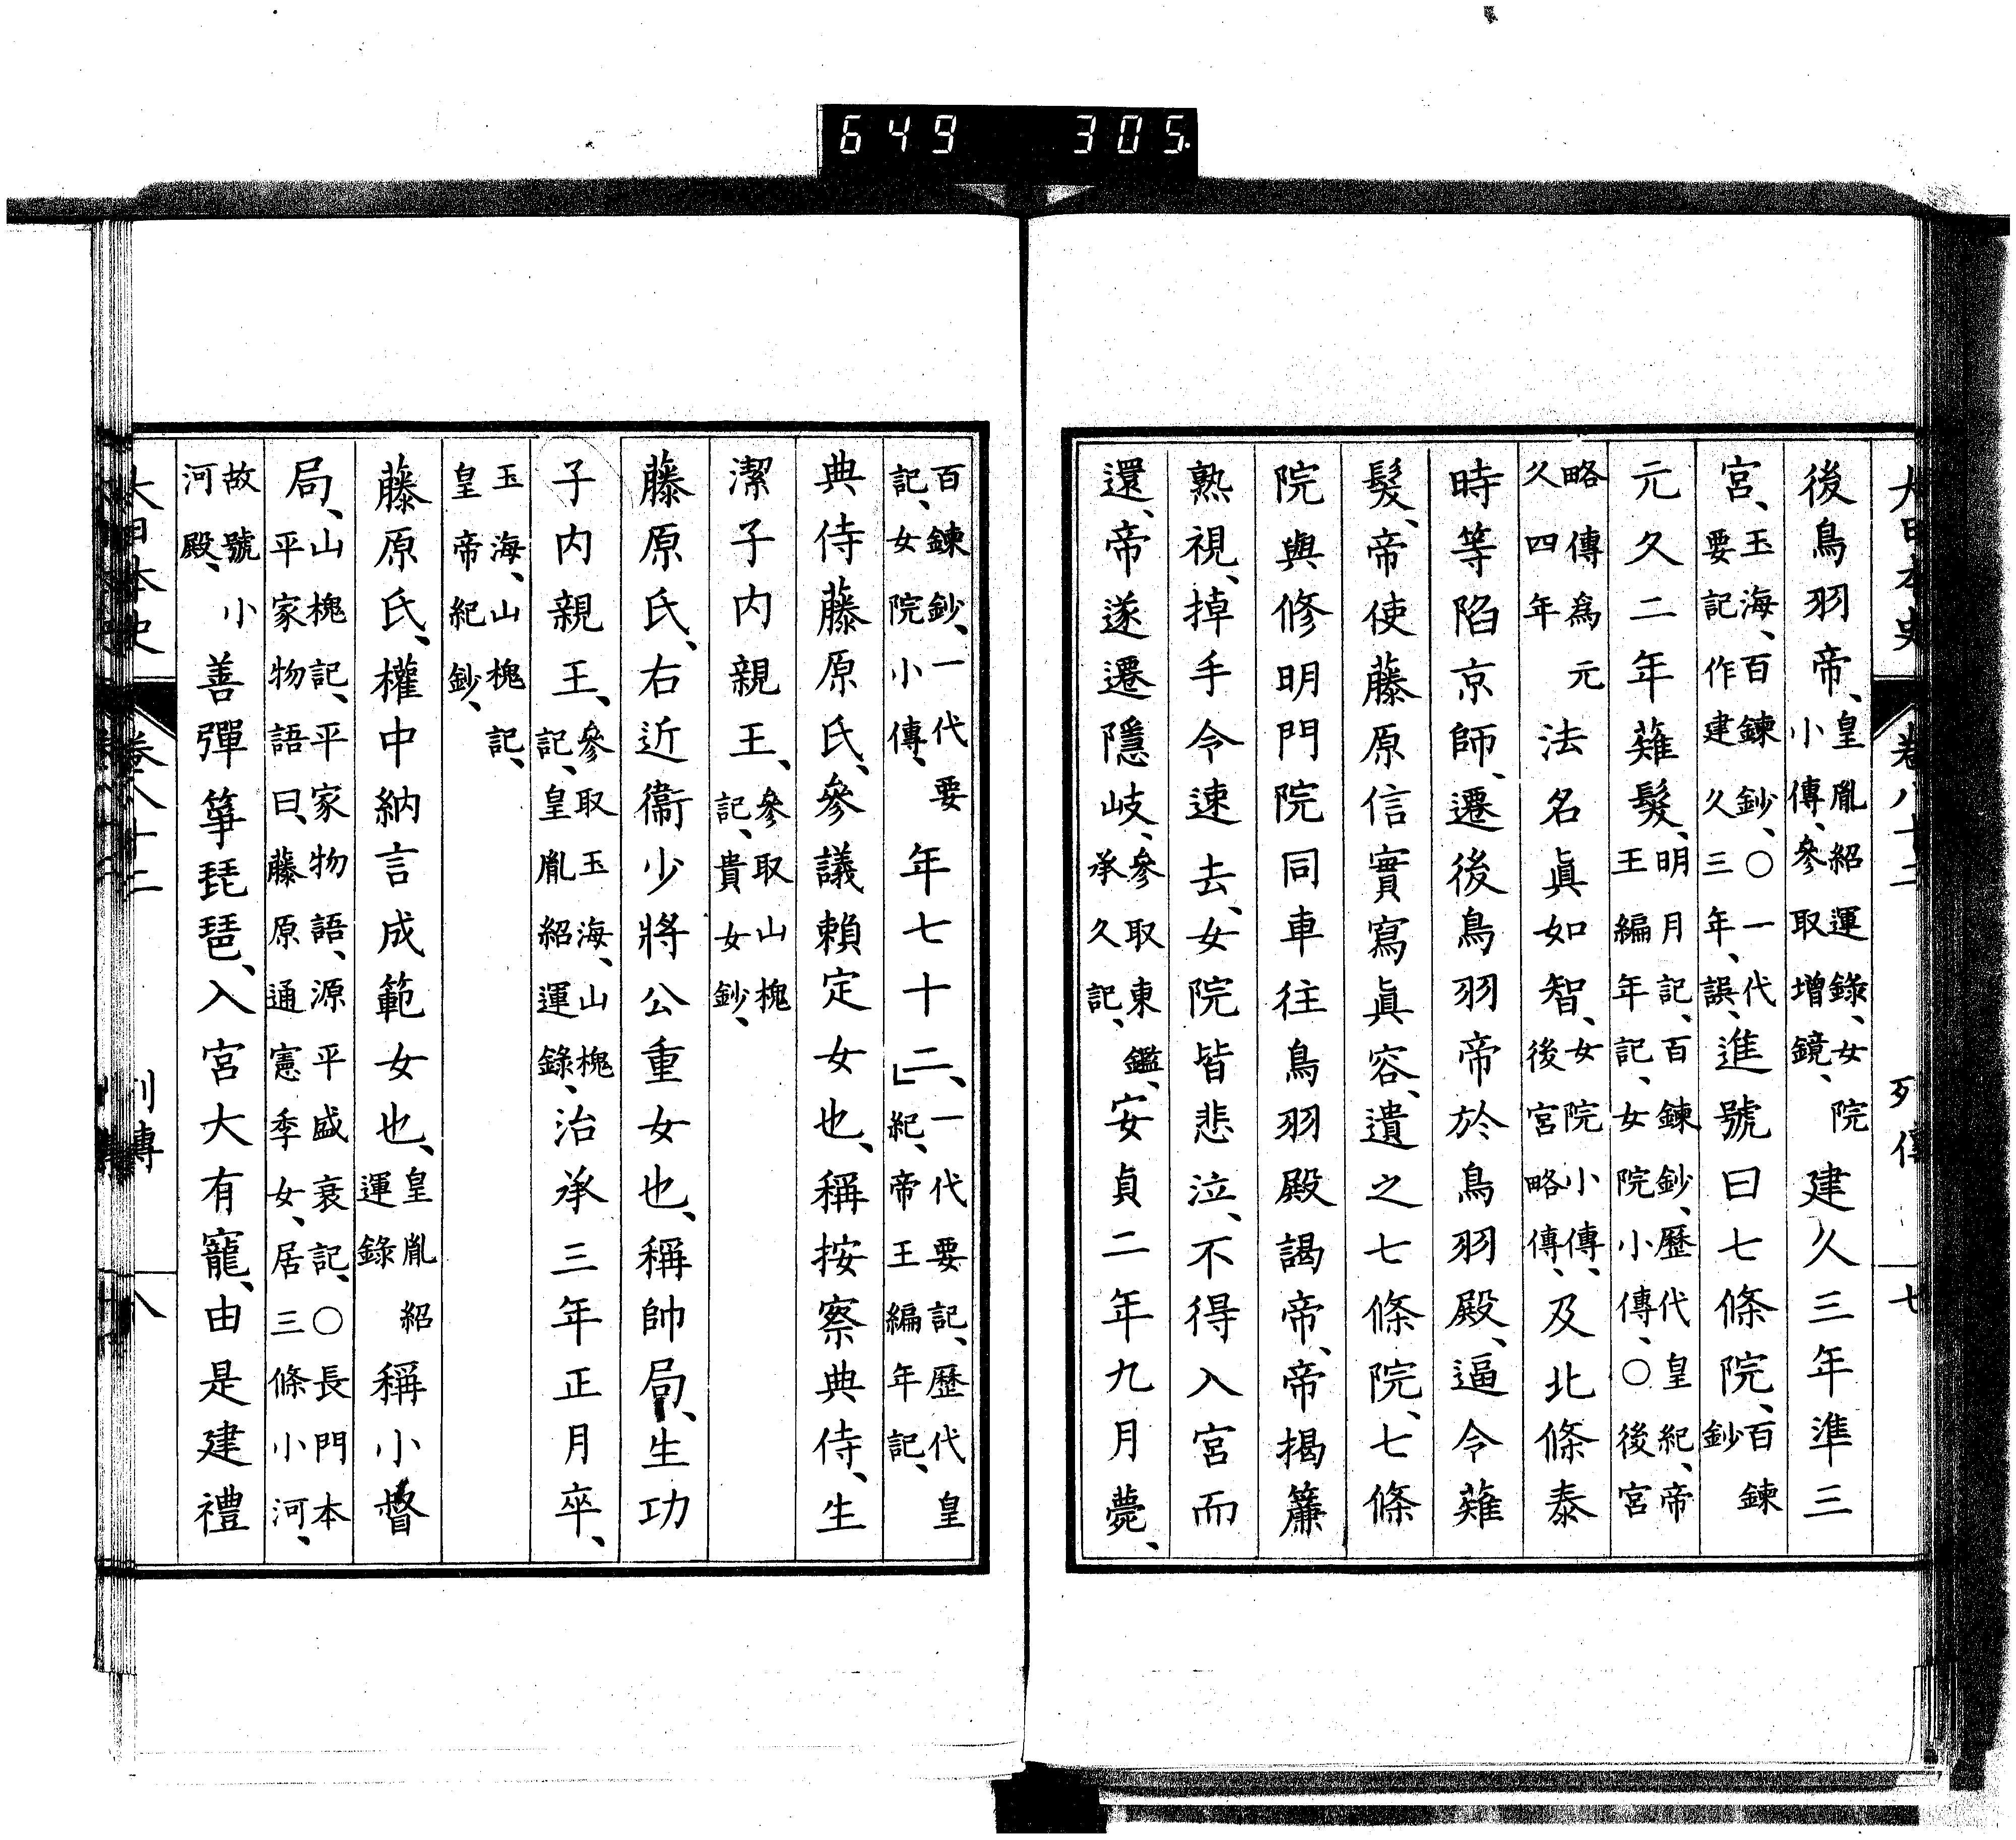 649 305
大日本史 卷八十二 列傳 七
後鳥羽帝、皇胤紹運錄、女院小傳、參取增鏡、建久三年準三
宮、玉海、百鍊鈔、○一代要記作建久三年、誤、進號曰七條院、百鍊鈔
元久二年薙髮、明月記、百鍊鈔、歷代皇紀、帝王編年記、女院小傳、○後宮
略傳爲元久四年法名眞如智、女院小傳、後宮略傳、及北條泰
時等陷京師、遷後鳥羽帝於鳥羽殿、逼令薙
髮、帝使藤原信實寫眞容、遺之七條院、七條
院與修明門院同車往鳥羽殿謁帝、帝揭簾
熟視、掉手令速去、女院皆悲泣、不得入宮而
還、帝遂遷隱岐、參取東鑑、承久記、安貞二年九月薨、
百鍊鈔、一代要記、女院小傳、年七十二、一代要記、歷代皇紀、帝王編年記、
典侍藤原氏、參議賴定女也、稱按察典侍、生
潔子內親王、參取山槐記、貴女鈔、
藤原氏、右近衞少將公重女也、稱帥局、生功
子內親王、參取玉海、山槐記、皇胤紹運錄、治承三年正月卒、
玉海、山槐記、皇帝紀鈔、
藤原氏、權中納言成範女也、皇胤紹運錄稱小督
局、山槐記、平家物語、源平盛衰記、○長門本平家物語曰、藤原通憲季女、居三條小河、
故號小河殿、善彈箏琵琶、入宮大有寵、由是建禮
大日本史 卷八十二 列傳 八